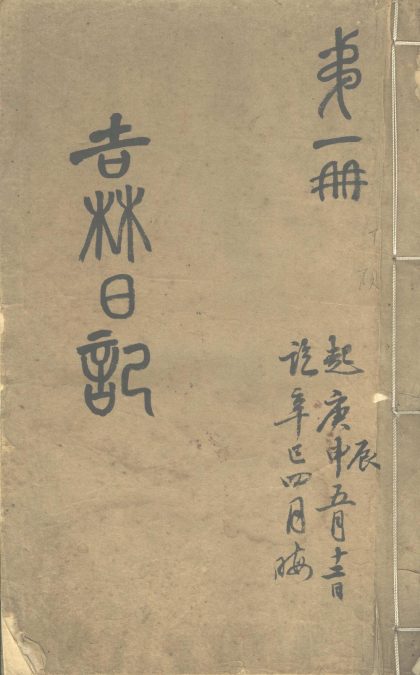 第一冊
吉林日記
起庚申五月十二日
辰
訖辛巳四月晦